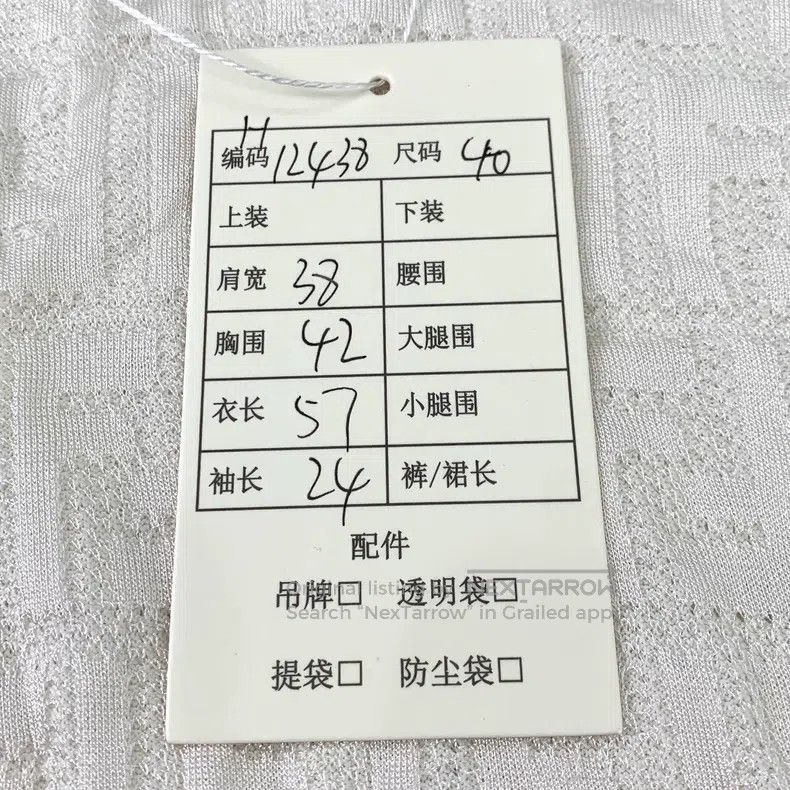 编码 H12438 尺码 40
上装 下装
肩宽 38 腰围
胸围 42 大腿围
衣长 57 小腿围
袖长 24 裤/裙长
配件
吊牌□ 透明袋□
Original listing NEXTARROW
Search "NexTarrow" in Grailed app
提袋□ 防尘袋□